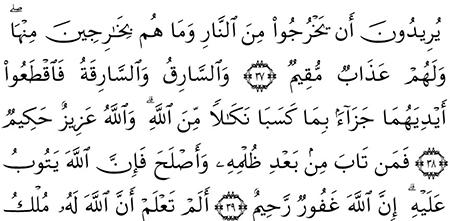 يُرِيدُونَ أَن يَخْرُجُوا۟ مِنَ ٱلنَّارِ وَمَا هُم بِخَٰرِجِينَ مِنْهَا ۖ
وَلَهُمْ عَذَابٌ مُّقِيمٌ ﴿٣٧﴾ وَٱلسَّارِقُ وَٱلسَّارِقَةُ فَٱقْطَعُوٓا۟
أَيْدِيَهُمَا جَزَآءًۢ بِمَا كَسَبَا نَكَٰلًا مِّنَ ٱللَّهِ ۗ وَٱللَّهُ عَزِيزٌ حَكِيمٌ
﴿٣٨﴾ فَمَن تَابَ مِنۢ بَعْدِ ظُلْمِهِۦ وَأَصْلَحَ فَإِنَّ ٱللَّهَ يَتُوبُ
عَلَيْهِ ۗ إِنَّ ٱللَّهَ غَفُورٌ رَّحِيمٌ ﴿٣٩﴾ أَلَمْ تَعْلَمْ أَنَّ ٱللَّهَ لَهُۥ مُلْكُ